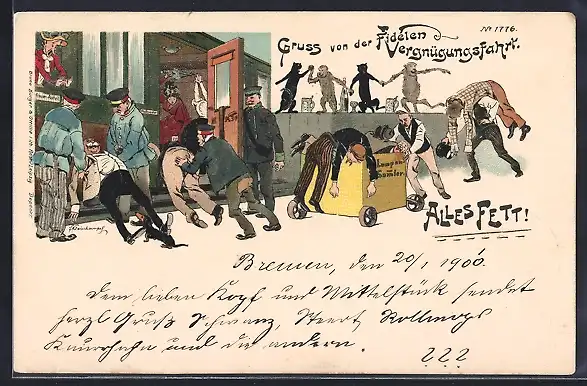 No 1776.
Gruss von der Fidelen
Vergnügungsfahrt.
Lumpen-
Sammler.
ALLES FETT!
Bremen, den 20/1 1900.
Dem lieben Kopf und Mittelstück sendet
herzl Gruß Schwanz, Steert Rollmops
und die andern.
222